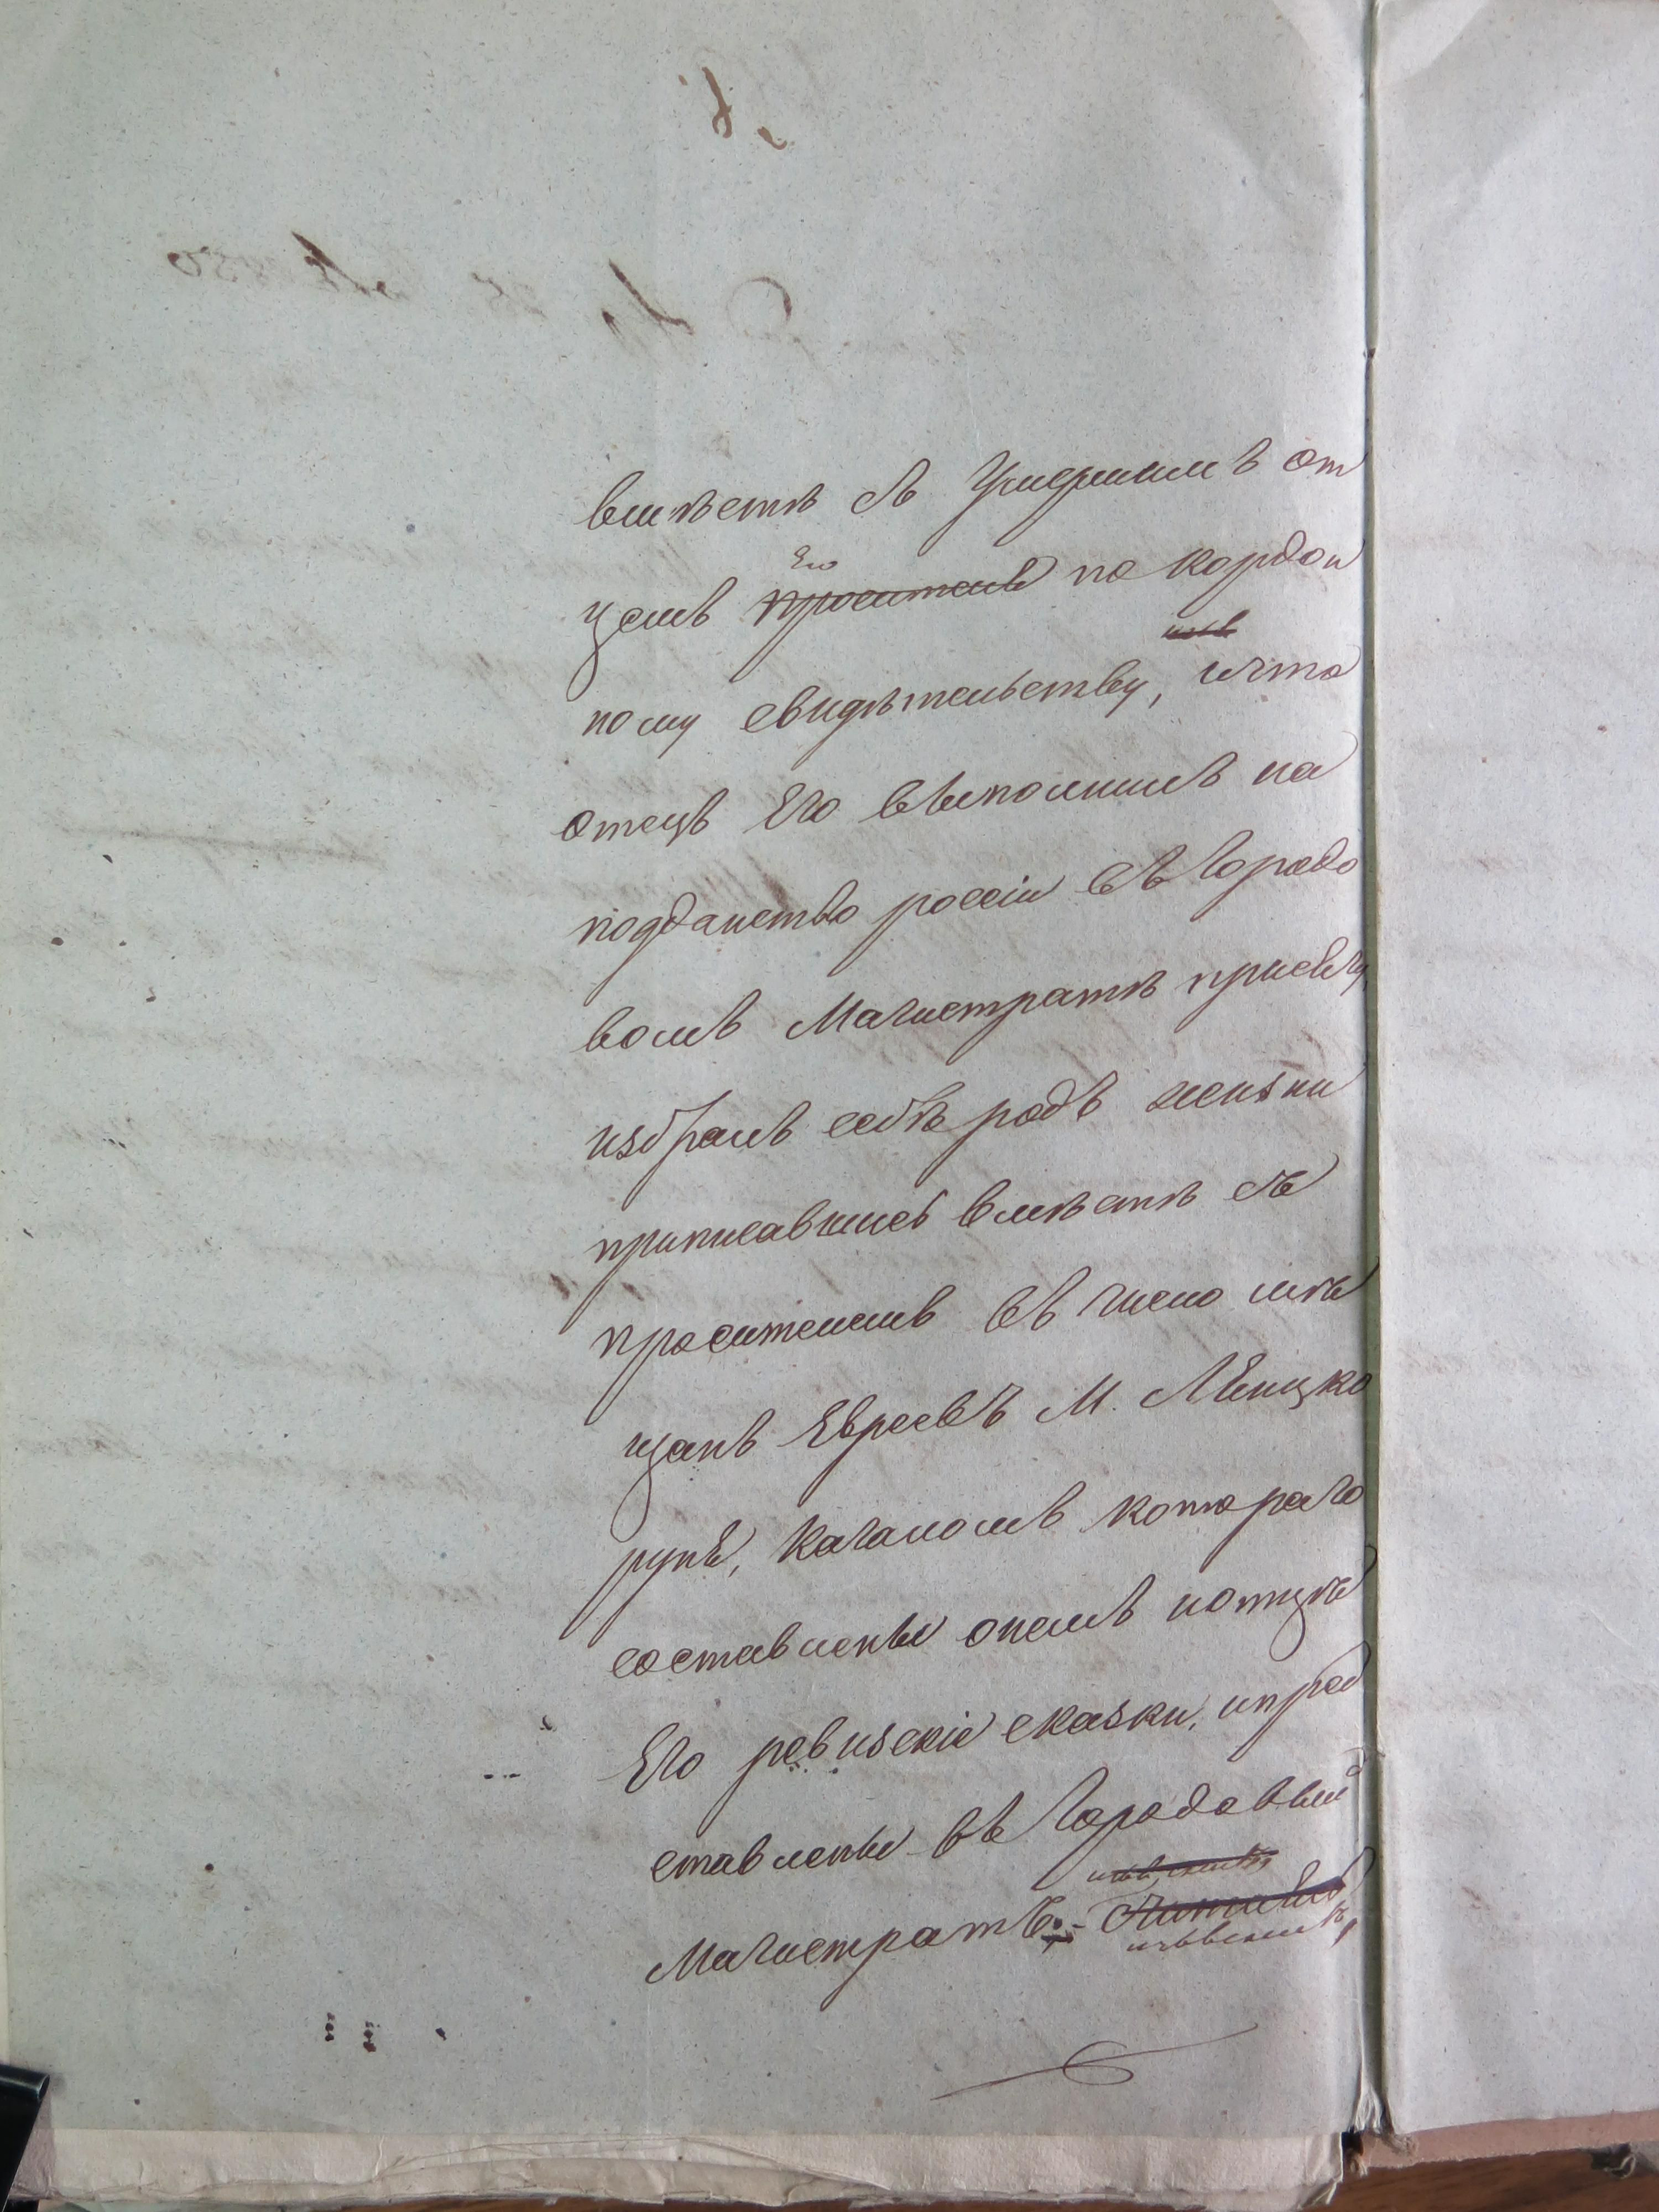 вмѣстѣ съ Умершимъ от
Его
цемъ проситель по кордон
ному свидѣтельству, ичто
отецъ Его выполнилъ на
подданство россіи въ Городо
вомъ Магистратѣ присягу,
избралъ себѣ родъ жизни
приписавшись вмѣстѣ съ
просителемъ въ число мѣ
щанъ Евреевъ М. Лѣницко
рунь, кагаломъ котораго
составлены онемъ и отцѣ
Его ревизскіе сказки, ипред
ставлены въ Городовый
Магистратъ.